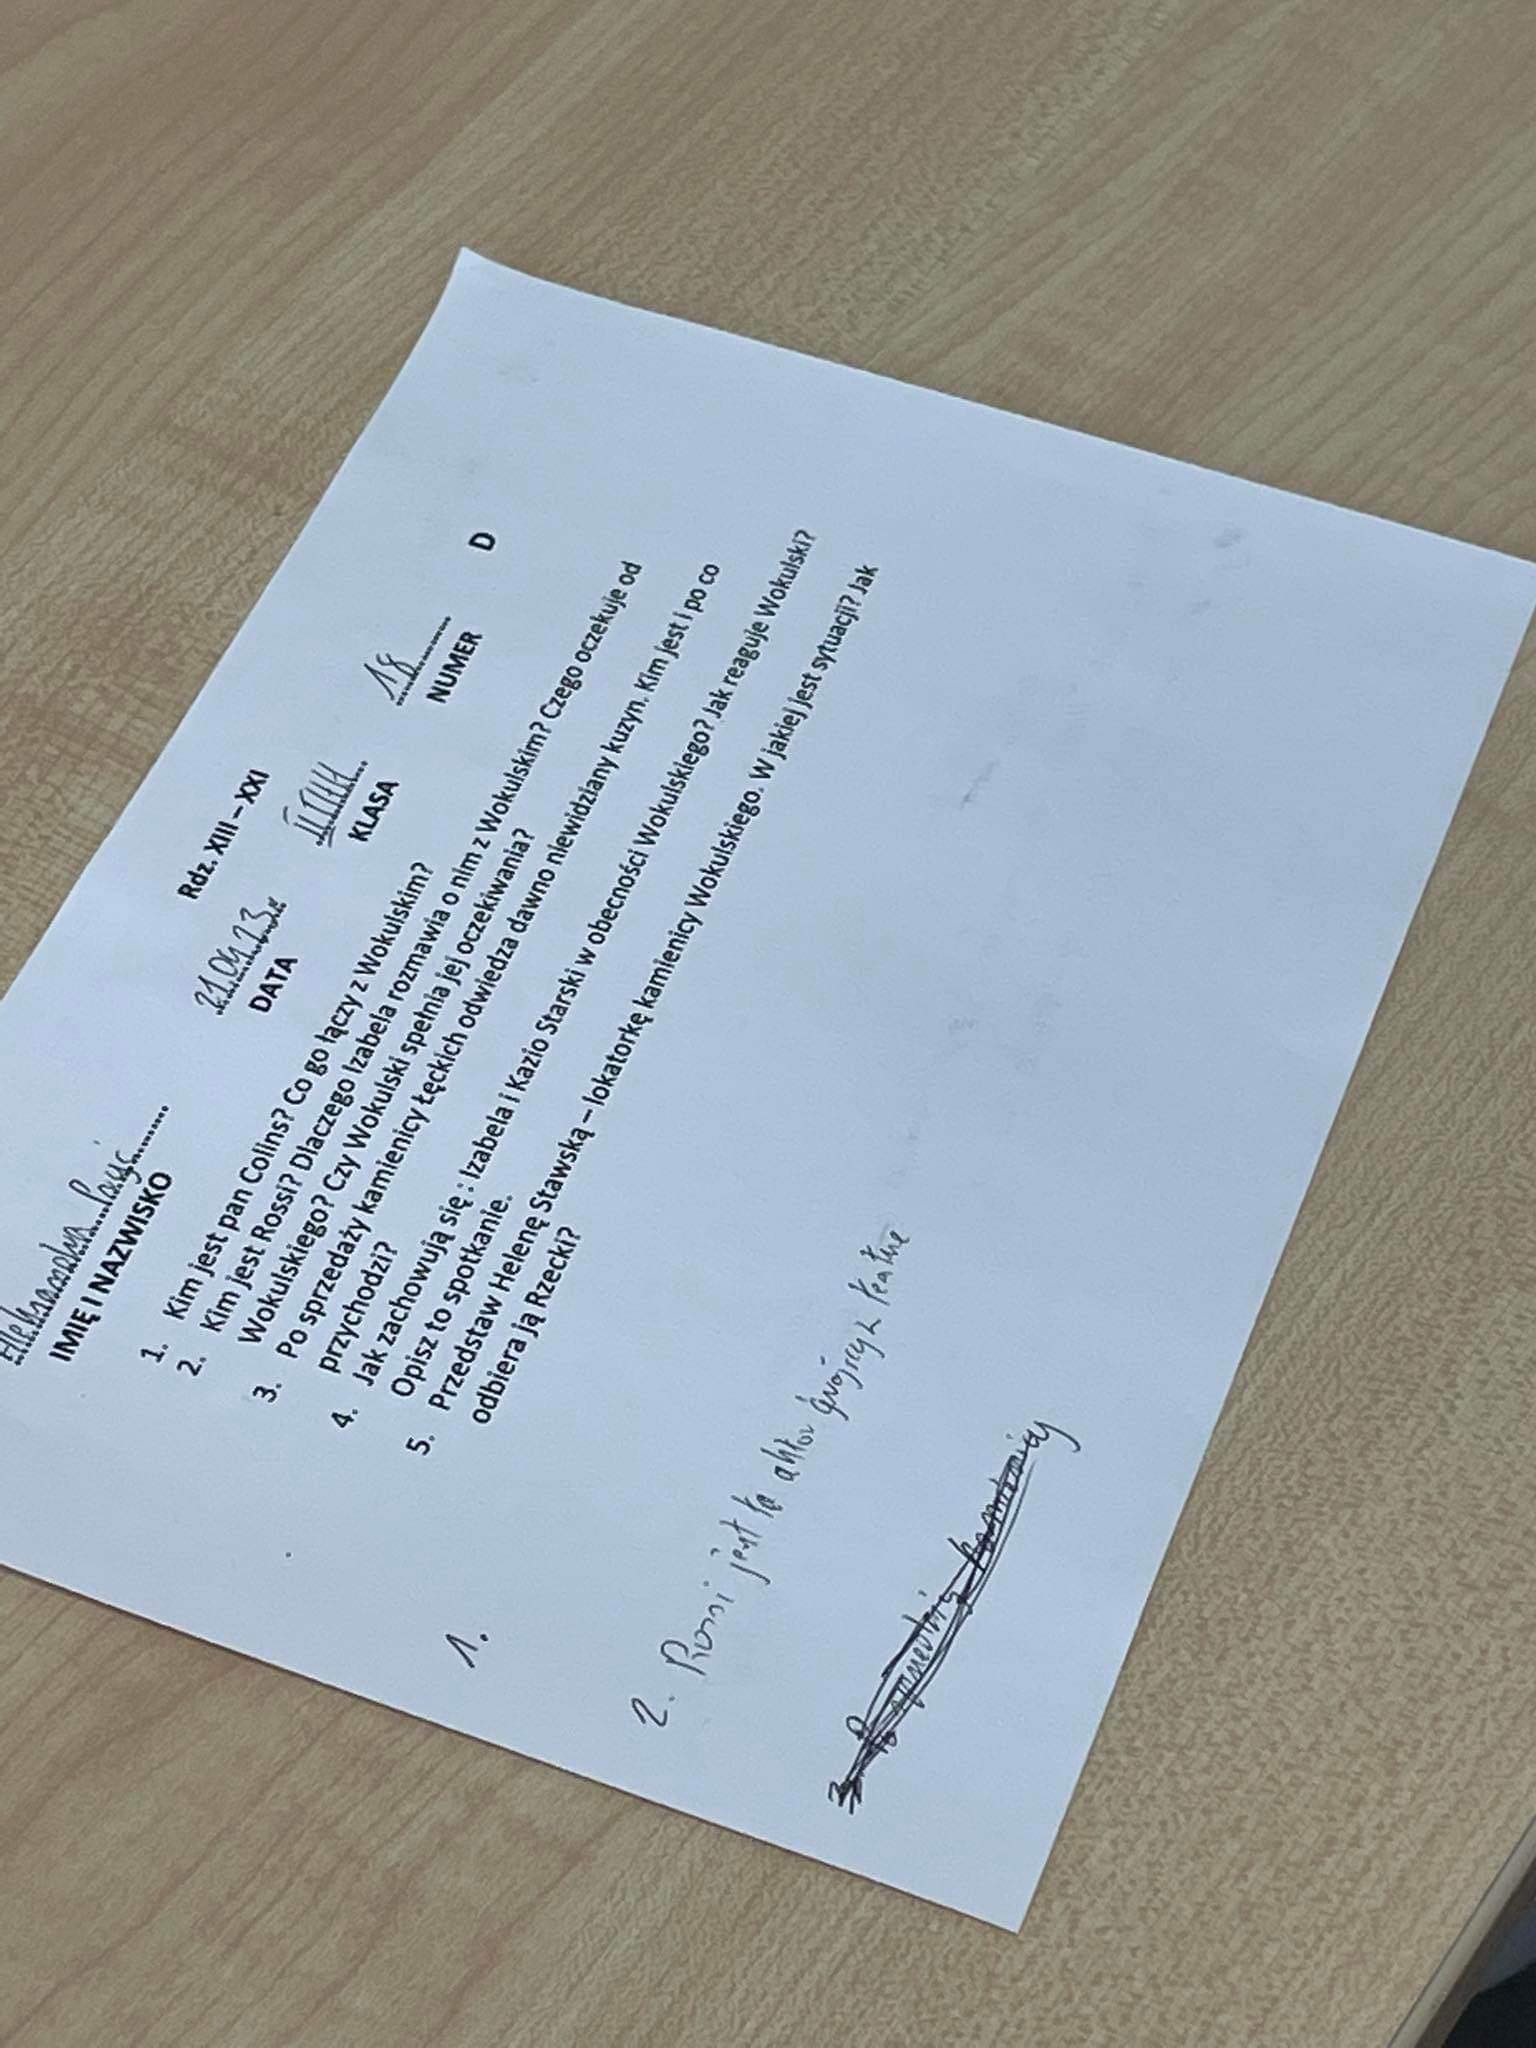 Aleksandra
IMIĘ I NAZWISKO
21.04.23r
DATA
KLASA
18
NUMER
Rdz. XIII – XXI
D
1. Kim jest pan Colins? Co go łączy z Wokulskim?
2. Kim jest Rossi? Dlaczego Izabela rozmawia o nim z Wokulskim? Czego oczekuje od
Wokulskiego? Czy Wokulski spełnia jej oczekiwania?
3. Po sprzedaży kamienicy Łęckich odwiedza dawno niewidziany kuzyn. Kim jest i po co
przychodzi?
4. Jak zachowują się : Izabela i Kazio Starski w obecności Wokulskiego? Jak reaguje Wokulski?
Opisz to spotkanie.
5. Przedstaw Helenę Stawską – lokatorkę kamienicy Wokulskiego. W jakiej jest sytuacji? Jak
odbiera ją Rzecki?
1.
2. Rossi jest to aktor
3. Po kamienicy